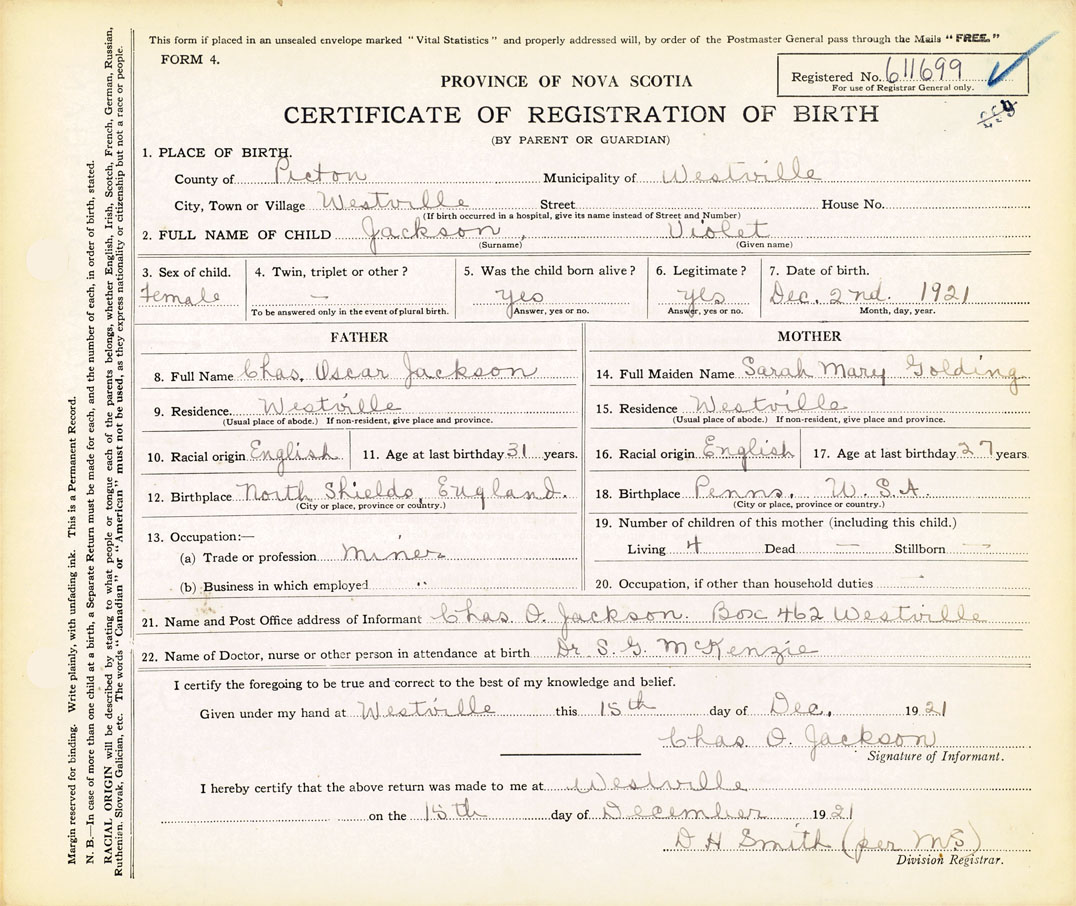 This form if placed in an unsealed envelope marked "Vital Statistics" and properly addressed will, by order of the Postmaster General pass through the Mails "FREE."
FORM 4.
PROVINCE OF NOVA SCOTIA
Registered No. 611699
For use of Registrar General only.
CERTIFICATE OF REGISTRATION OF BIRTH
(BY PARENT OR GUARDIAN)
1. PLACE OF BIRTH.
County of Picton Municipality of Westville
City, Town or Village Westville Street House No.
(If birth occurred in a hospital, give its name instead of Street and Number)
2. FULL NAME OF CHILD Jackson, Violet
(Surname) (Given name)
3. Sex of child. 4. Twin, triplet or other? 5. Was the child born alive? 6. Legitimate? 7. Date of birth.
Female — yes yes Dec. 2nd. 1921
To be answered only in the event of plural birth. Answer, yes or no. Answer, yes or no. Month, day, year.
FATHER
8. Full Name Chas. Oscar Jackson
9. Residence Westville
(Usual place of abode.) If non-resident, give place and province.
10. Racial origin English 11. Age at last birthday 31 years.
12. Birthplace North Shields, England.
(City or place, province or country.)
13. Occupation:—
(a) Trade or profession Miner
(b) Business in which employed "
MOTHER
14. Full Maiden Name Sarah Mary Golding
15. Residence Westville
(Usual place of abode.) If non-resident, give place and province.
16. Racial origin English 17. Age at last birthday 27 years
18. Birthplace Penns. U.S.A.
(City or place, province or country.)
19. Number of children of this mother (including this child.)
Living 4 Dead — Stillborn —
20. Occupation, if other than household duties
21. Name and Post Office address of Informant Chas. O. Jackson. Box 462 Westville
22. Name of Doctor, nurse or other person in attendance at birth Dr. S. G. McKenzie
I certify the foregoing to be true and correct to the best of my knowledge and belief.
Given under my hand at Westville this 15th day of Dec. 1921
Chas. O. Jackson
Signature of Informant.
I hereby certify that the above return was made to me at Westville
on the 15th day of December 1921
D H Smith (per MS)
Division Registrar.
Margin reserved for binding. Write plainly, with unfading ink. This is a Permanent Record.
N. B.—In case of more than one child at a birth, a Separate Return must be made for each, and the number of each, in order of birth, stated.
RACIAL ORIGIN will be described by stating to what people or tongue each of the parents belongs, whether English, Irish, Scotch, French, German, Russian,
Ruthenian, Slovak, Galician, etc. The words "Canadian" or "American" must not be used, as they express nationality or citizenship but not a race or people.